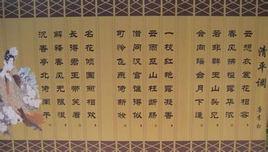 清平调
唐 李白
云想衣裳花想容
春风拂槛露华浓
若非群玉山头见
会向瑶台月下逢
一枝红艳露凝香
云雨巫山枉断肠
借问汉宫谁得似
可怜飞燕倚新妆
名花倾国两相欢
长得君王带笑看
解释春风无限恨
沉香亭北倚阑干